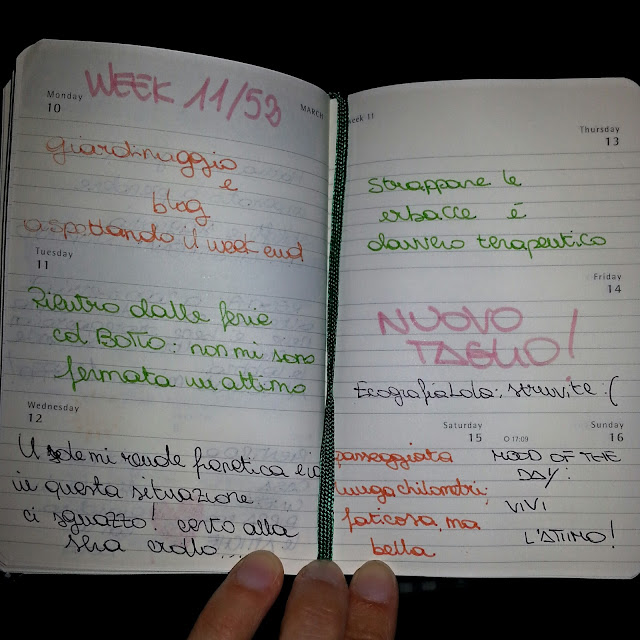 WEEK 11/53
Monday
10
MARCH
giardinaggio
e
blog
aspettando il week end
Tuesday
11
Rientro dalle ferie
col BOTTO: non mi sono
fermata un attimo
Wednesday
12
Il sole mi rende frenetica e io
in questa situazione
ci sguazzo! certo alla
sera crollo...
week 11
Thursday
13
Strappare le
erbacce è
davvero terapeutico
Friday
14
NUOVO
TAGLIO!
Ecografia Lola: struvite :(
Saturday
15
passeggiata
lunga chilometri;
faticosa, ma
bella
17:09
Sunday
16
MOOD OF THE
DAY:
VIVI
L'ATTIMO!